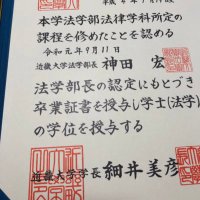 本学法学部法律学科所定の
課程を修めたことを認める
令和元年9月11日
近畿大学法学部長 神田 宏
法学部長の認定にもとづき
卒業証書を授与し学士(法学)
の学位を授与する
近畿大学学長 細井美彦